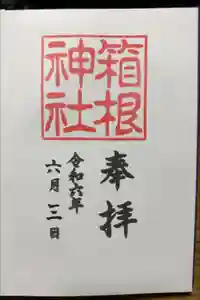 箱根
神社
奉拝
令和六年
六月 日